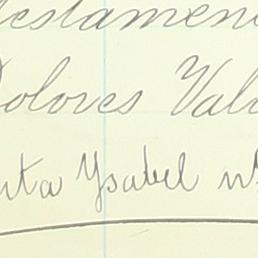 Testamen
Dolores Val
nta Ysabel nº